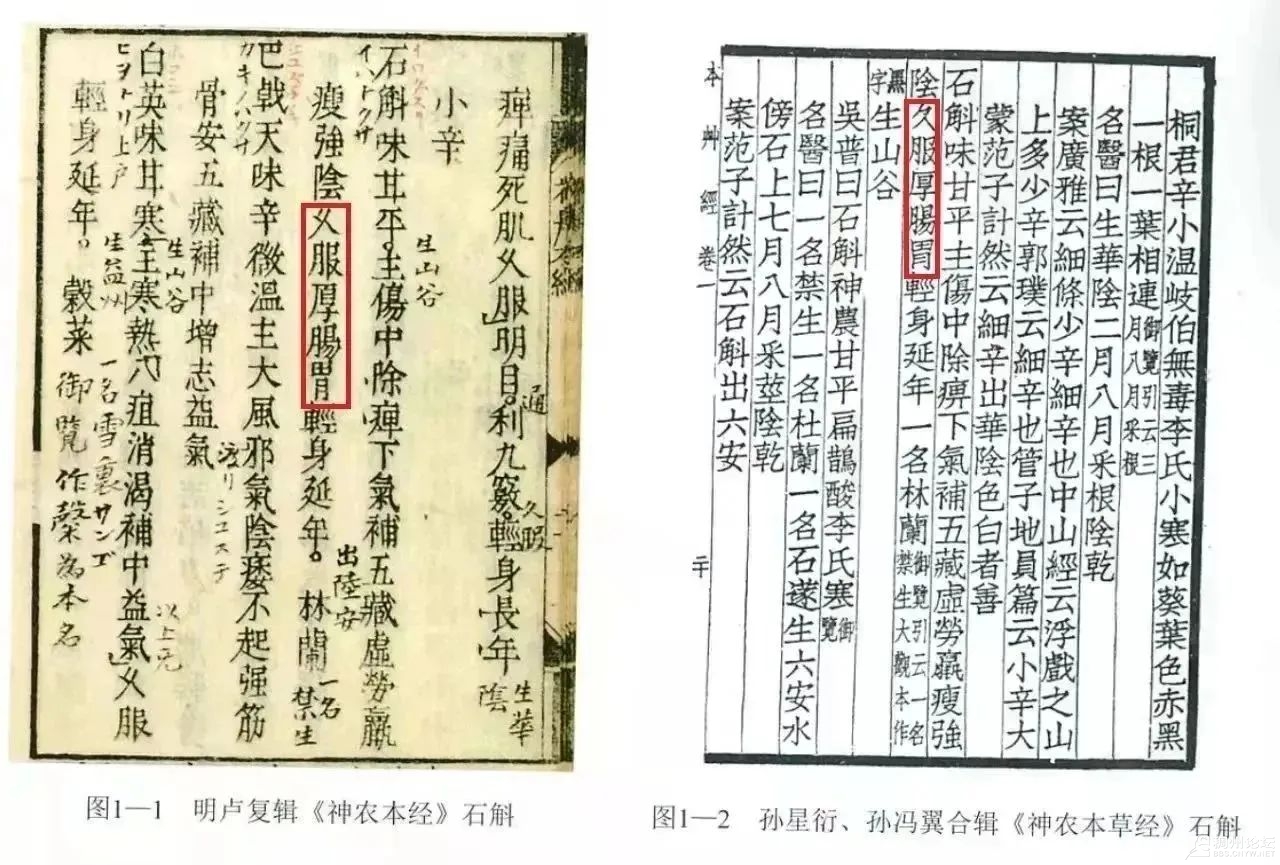 痺痛死肌久服明目利九竅。輕身長年
通
生華陰
小辛
石斛味甘平。主傷中除痺下氣補五藏虛勞羸
生山谷
イハトクサ
瘦強陰久服厚腸胃輕身延年。林蘭
出陸安
一名禁生
巴戟天味辛微溫主大風邪氣陰痿不起强筋
骨安五藏補中增志益氣
白英味甘寒主寒熱八疸消渴補中益氣久服
生山谷
ヒヨトリ上戸
輕身延年。穀菜
生益州
一名雪裏サンゴ
图1—1 明卢复辑《神农本经》石斛
桐君辛小溫岐伯無毒李氏小寒如葵葉色赤黑
一根一葉相連御覽引云三月八月采根
名醫曰生華陰二月八月采根陰乾
案廣雅云細條少辛細辛也中山經云浮戲之山
上多少辛郭璞云細辛也管子地員篇云小辛大
蒙范子計然云細辛出華陰色白者善
石斛味甘平主傷中除痹下氣補五藏虛勞羸瘦強
陰久服厚腸胃輕身延年一名林蘭御覽引云一名禁生大觀本作
黑字生山谷
吳普曰石斛神農甘平扁鵲酸李氏寒御覽
名醫曰一名禁生一名杜蘭一名石蓫生六安水
傍石上七月八月采莖陰乾
案范子計然云石斛出六安
本艸經 卷一
二十
图1—2 孙星衍、孙冯翼合辑《神农本草经》石斛